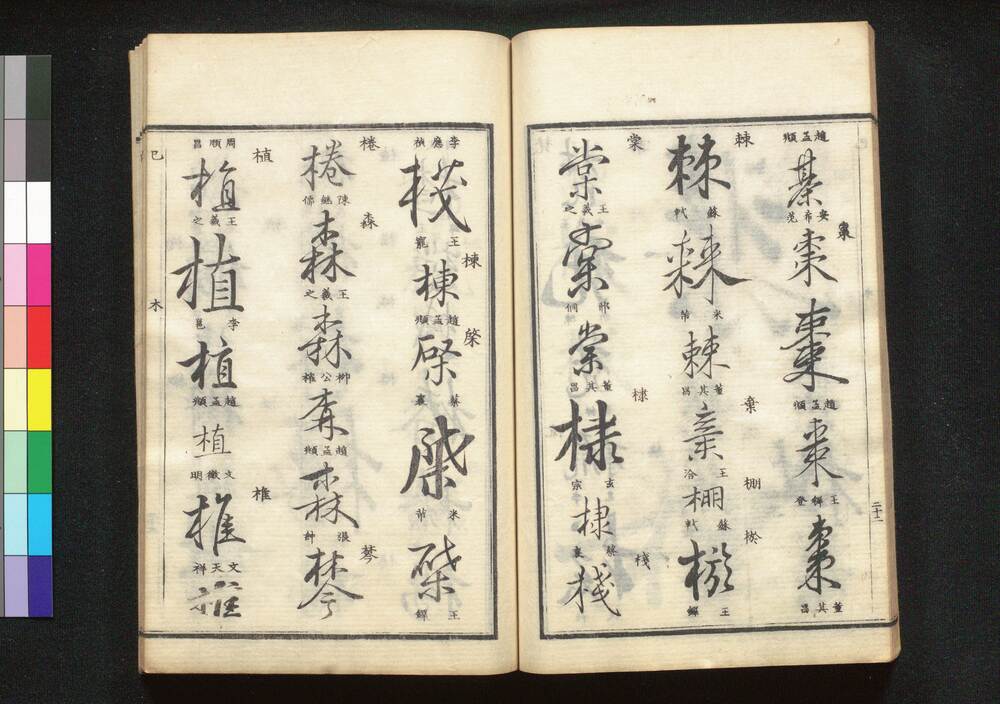 趙孟頫
棊
安希范
棗
棗
棗
趙孟頫
棗
王穉登
棗
董其昌
二十二
棘
棘
蘇軾
棘
米芾
棘
董其昌
棄
棄
王洽
棚
棚
蘇軾
王鐸
棠
棠
王羲之
棠
邢侗
棠
董其昌
棣
棣
玄宗
棣
蔡襄
棧
棧
李應禎
棧
王寵
棟
棟
趙孟頫
棨
棨
蔡襄
棨
米芾
棨
王鐸
棬
棬
陳繼儒
森
森
王羲之
森
柳公權
森
趙孟頫
森
棽
棽
周順昌
植
植
王羲之
植
李邕
植
趙孟頫
植
文徵明
椎
椎
文天祥
椎
巳
木